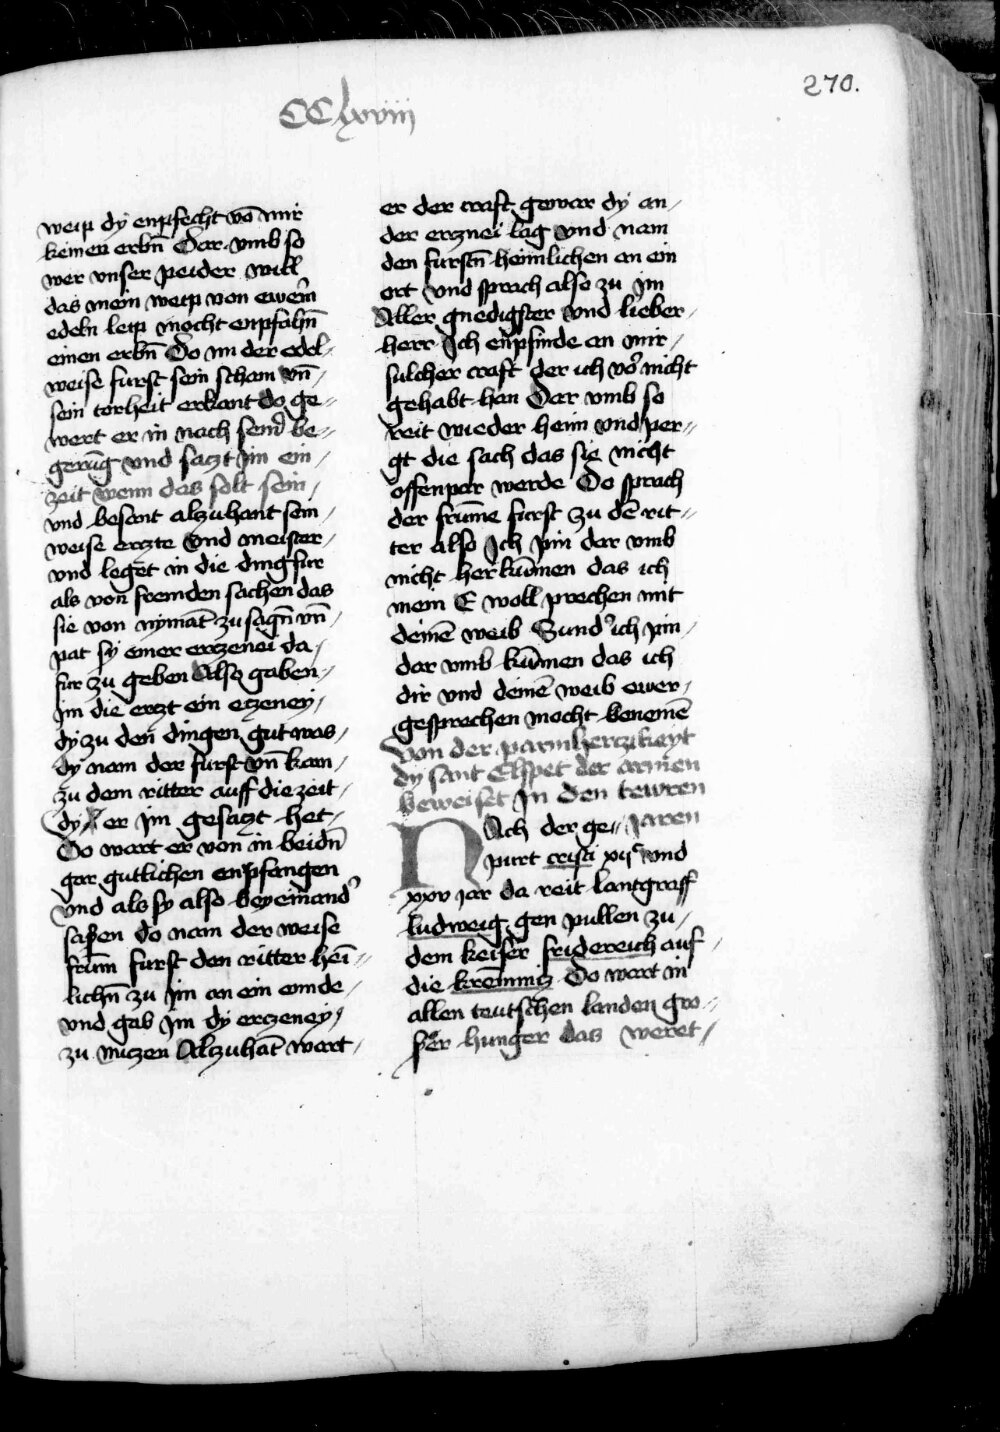 270.
CClxviii
weip dy enpfecht vō mir
keinen erbn̄ Dar vmb so
wer vnser peider will
das mein weip von ewerm
edeln leip mocht enpfahn̄
einen erbn̄ Do nu der edel
weise furst sein scham vn̄
sein torheit erkant do ge
wert er in nach seinr̄ be
gerūg vnd saczt im ein
zeit wenn das solt sein
vnd besant alzuhant sein
weise erczte vnd meister
vnd leget in die ding fur
als von fremden sachen das
sie von nymāt zu sagn̄ vn̄
pat sy einer erczenei da
fur zu geben Also gaben
im die erczt ein erczeney
dy zu den dingen gut was
dy nam der furst vn̄ kam
zu dem ritter auff die zeit
dy er im gesaczt het
Do wart er von in beidn̄
gar gutlichen enpfangen
vnd als sy also beyeinand'
saßen do nam der weise
frūm furst den ritter hei
lichn̄ zu im an ein ende
vnd gab im dy erczeney
zu nuczen Alzuhāt wart
er der craft gewar dy an
der erznei lag vnd nam
den furstn̄ heimlichen an ein
ort vnd sprach also zu im
Aller gnedigster vnd lieber
herr Ich enpfinde an mir
sulcher craft der ich vor nicht
gehabt han Dar vmb so
reit wieder heim vnd per
gt die sach das sie nicht
offenpar werde Do sprach
der frūme furst zu dē rit
ter also Ich pin dar vmb
nicht her kūmen das ich
mein E woll prechen mit
deinē weib Sund' ich pin
dar vmb kūmen das ich
dir vnd deinē weib ewer
gesprechen mocht benemē
Von der parmherczikeyt
dy sant Elspet der armen
beweiset In den tewren
Jaren
NAch der ge
purt cristi xijc vnd
xxv jar da reit lantgraff
ludweig gen pullen zu
dem keiser fridereich auf
die kremnicz Do wart in
allen teutschen landen gro
ßer hunger das weret